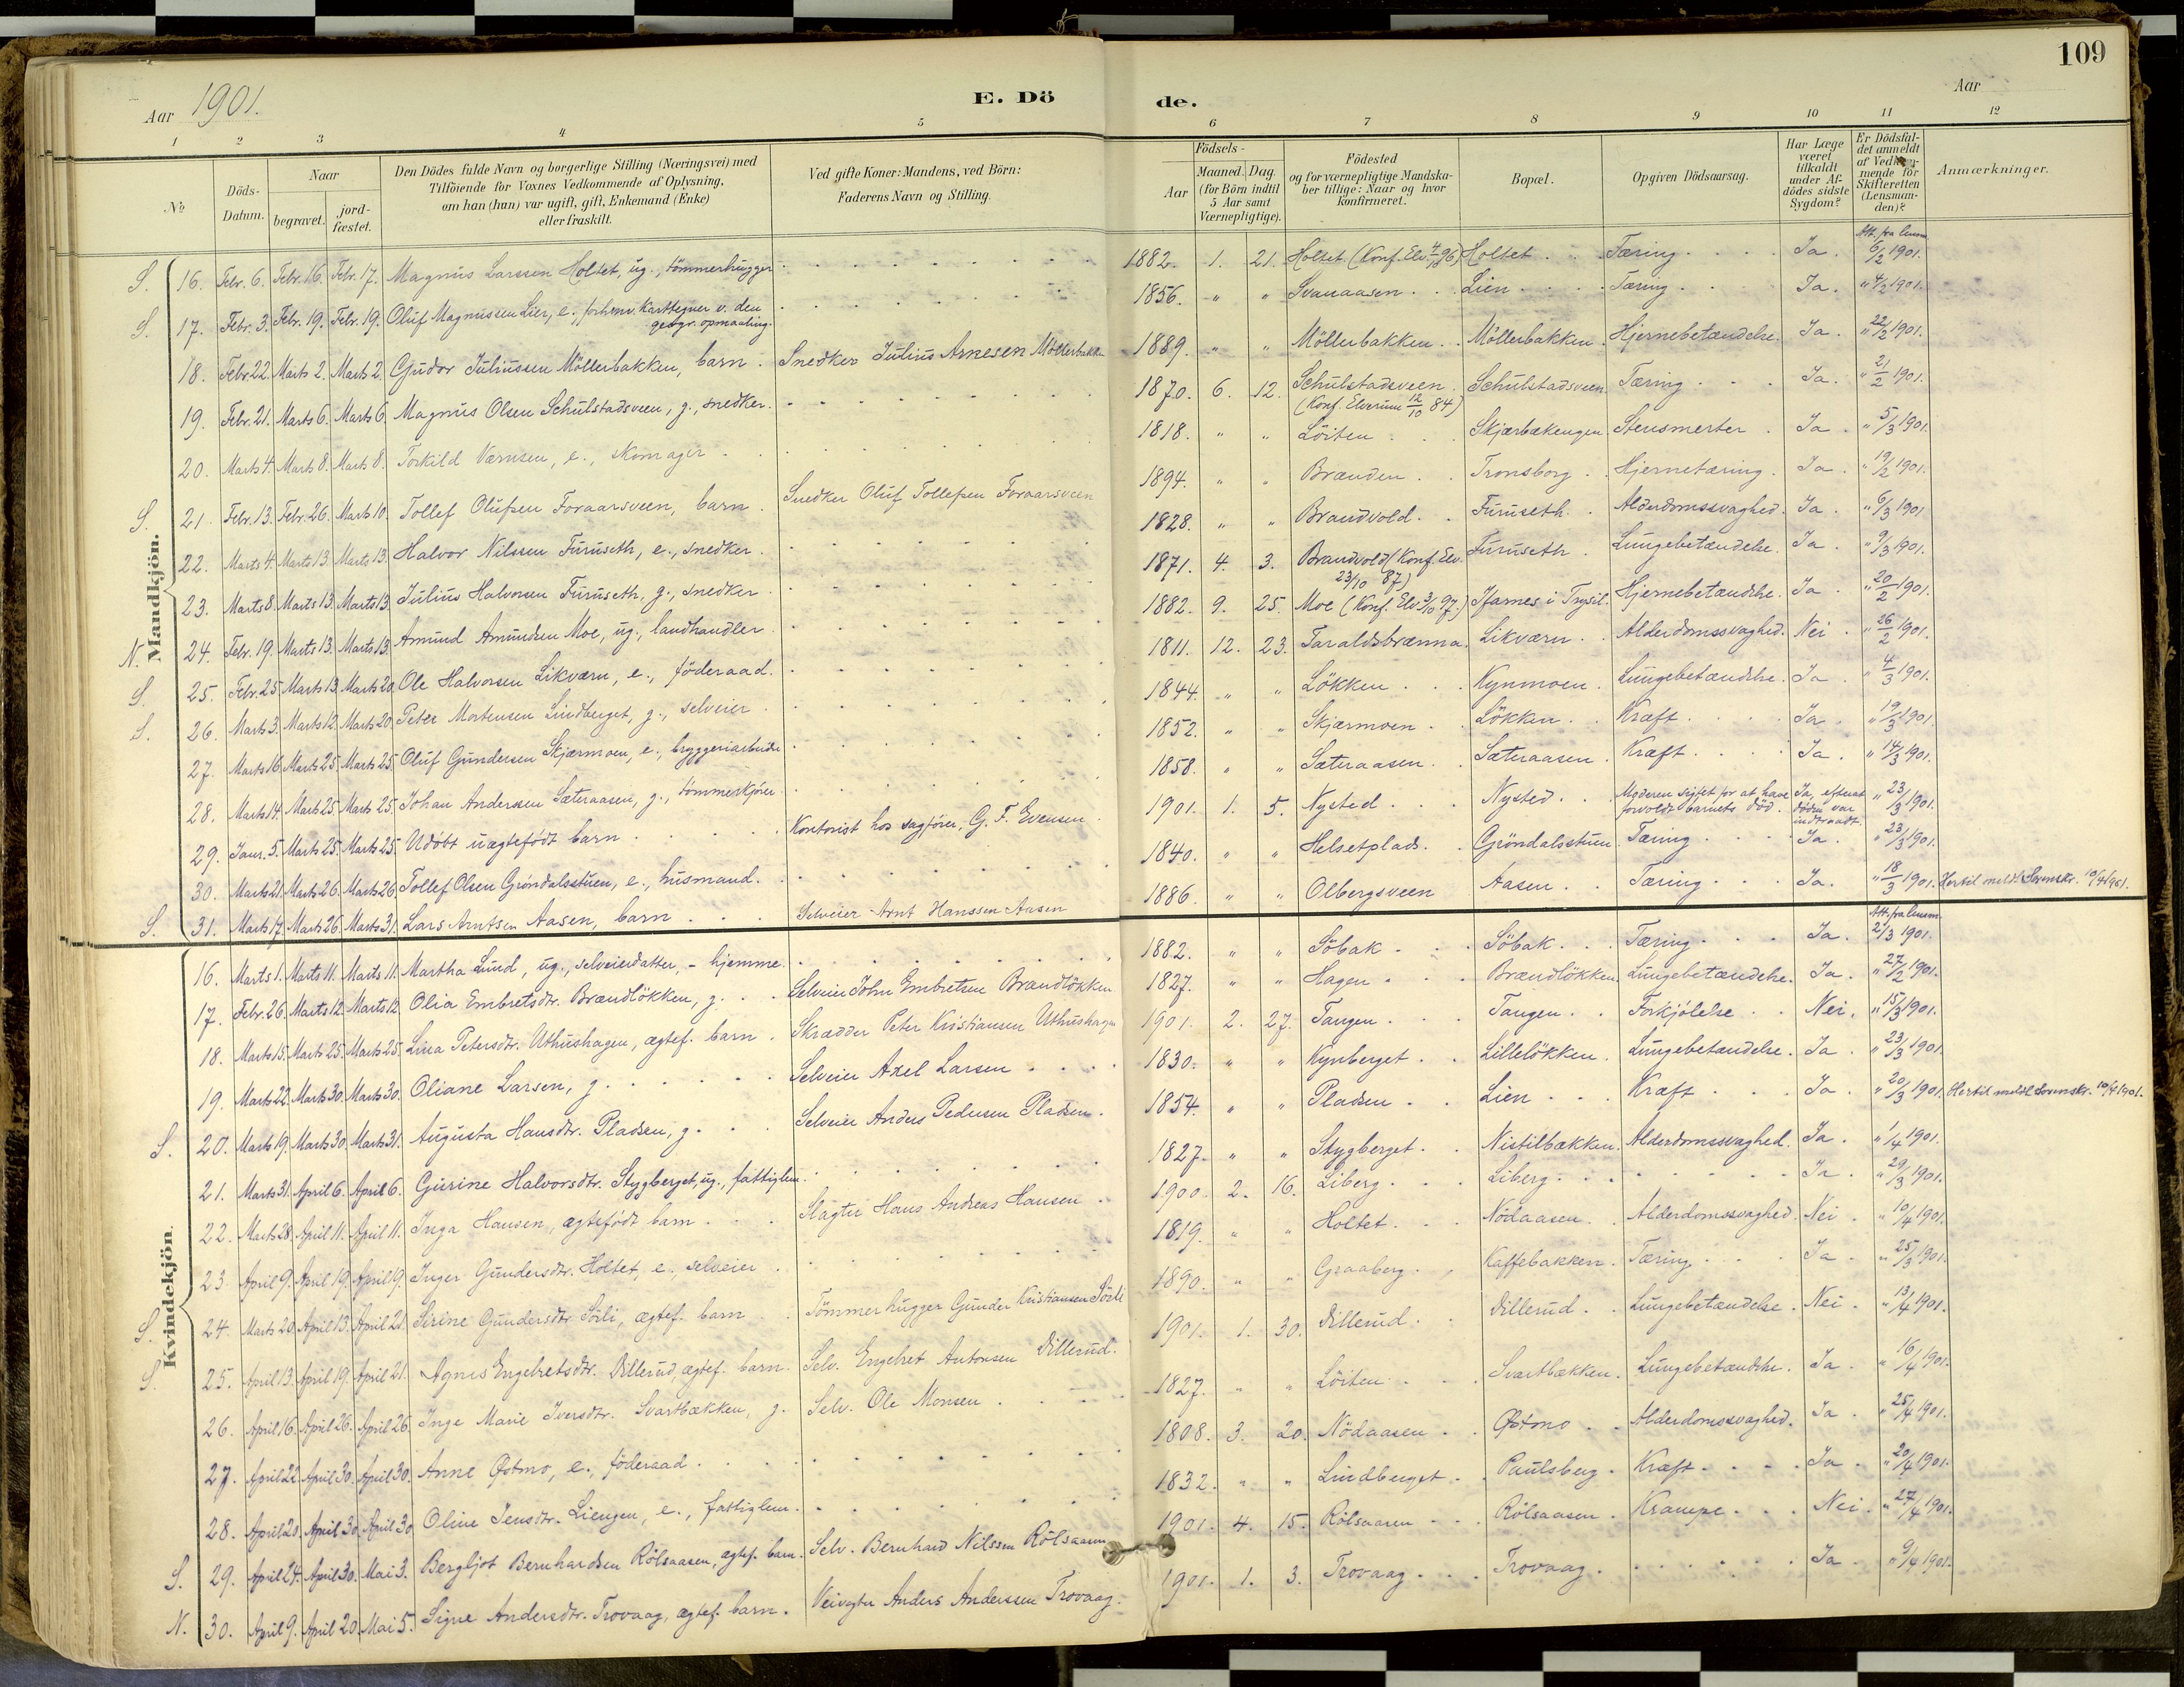 109
Aar 1901.
E. Dö de.
Aar
1 2 3 4 5 6 7 8 9 10 11 12
No
Döds-Datum.
Naar
begravet.
jord-fæstet.
Den Dödes fulde Navn og borgerlige Stilling (Næringsvei) med
Tilföiende for Voxnes Vedkommende af Oplysning,
om han (hun) var ugift, gift, Enkemand (Enke)
eller fraskilt.
Ved gifte Koner: Mandens, ved Börn:
Faderens Navn og Stilling.
Födsels-
Aar
Maaned. Dag.
(for Börn indtil
5 Aar samt
Værnepligtige).
Födested
og for værnepligtige Mandska-
ber tillige: Naar og hvor
konfirmeret.
Bopæl.
Opgiven Dödsaarsag.
Har Læge
været
tilkaldt
under Af-
dödes sidste
Sygdom?
Er Dödsfal-
det anmeldt
af Vedkom-
mende for
Skifteretten
(Lensman-
den)?
Anmærkninger.
Mandkjön.
S. 16. Febr. 6. Febr. 16. Febr. 17. Magnus Larssen Holtet, ug., tömmerhugger 1882. 1. 21. Holtet (Konf. Elv. 4/ 96) Holtet Tæring Ja. Att. fra lensm 6/2 1901.
S. 17. Febr. 3. Febr. 19. Febr. 19. Oluf Magnussen Lier, e., forhenv. Karttegner v. den geogr. opmaaling. 1856. " " Svanaasen Lien Tæring Ja. " 4/2 1901.
18. Febr 22. Marts 2. Marts 2. Gudor Juliussen Möllerbakken, barn Snedker Julius Arnesen Möllerbakken 1889. " " Möllerbakken Möllerbakken Hjernebetændelse Ja. " 22/2 1901.
19. Febr. 21. Marts 6. Marts 6. Magnus Olsen Schulstadsveen, g., snedker. 1870. 6. 12. Schulstadsveen (Konf. Elverum 12/10 84) Schulstadsveen Tæring Ja. " 21/2 1901.
20. Marts 4. Marts 8. Marts 8. Torkild Værnsen, e., skomager 1818. " " Löiten Skjærbækengen Stensmerter Ja. " 5/3 1901.
S. 21. Febr. 13. Febr. 26. Marts 10. Tollef Olufsen Foraarsveen, barn. Snedker Oluf Tollefsen Foraarsveen 1894. " " Brænden Tronsborg Hjernetæring. Ja. " 19/2 1901.
22. Marts 4. Marts 13. Marts 13. Halvor Nilssen Furuseth, e., snedker. 1828. " " Brandvold Furuseth Alderdomssvaghed. Ja " 6/3 1901
23. Marts 8. Marts 13. Marts 13. Julius Halvorsen Furuseth, g., snedker 1871. 4. 3. Brandvold (Konf. Elv. 23/10 87) Furuseth Lungebetændelse. Ja. " 9/3 1901.
N. 24. Febr. 19. Marts 13. Marts 13. Amund Amundsen Moe, ug., landhandler 1882. 9. 25. Moe (Konf. Elv. 3/10 97.) i Trysil. Hjernebetændelse. Ja. " 20/2 1901.
S. 25. Febr. 25. Marts 13. Marts 20. Ole Halvorsen Likværn, e., föderaad. 1811. 12. 23. Taraldsbrænna. Likværn Alderdomssvaghed. Nei " 26/2 1901.
S. 26. Marts 3. Marts 12. Marts 20. Peter Mortensen Lindberget, g., selveier 1844. " " Lökken Kynmoen. Lungebetændelse. Ja " 4/3 1901.
27. Marts 16. Marts 25. Marts 25. Oluf Gundersen Skjærmoen, e., bryggeriarbeider 1852. " " Skjærmoen Lökken Kræft Ja " 19/3 1901.
28. Marts 14. Marts 25. Marts 25. Johan Anderssen Sæteraasen, g., tömmerkjörer 1858. " " Sæteraasen Sæteraasen Kræft Ja " 14/3 1901.
29. Janr. 5. Marts 25. Marts 25. Udöbt uægtefödt barn Kontorist hos sagförer, G. F. Evensen 1901. 1. 5. Nysted Nysted Moderen sigtet for at have forvoldt barnets död. Ja, efterat döden var indtraadt. " 23/3 1901.
30. Marts 21. Marts 26. Marts 26. Tollef Olsen Gröndalsstuen, e., husmand. 1840. " " Helsetplads. Gröndalsstuen Tæring Ja. " 23/3 1901.
S. 31. Marts 17. Marts 26. Marts 31. Lars Arntsen Aasen, barn Selveier Arnt Hanssen Aasen 1886. " " Olbergsveen Aasen Tæring Ja. " 18/3 1901. Hertil meldt Sorenskr. 10/4 1901.
Kvindekjön.
16. Marts 1. Marts 11. Marts 11. Martha Lund, ug., selveierdatter, - hjemme. 1882. " " Söbak Söbak Tæring Ja. Att. fra lensm. 2/3 1901.
17. Febr. 26. Marts 12. Marts 12. Olia Embretsdtr. Brændlökken, g. Selveier John Embretsen Brændlökken 1827. " " Hagen Brændlökken. Lungebetændelse. Ja. " 27/2 1901.
18. Marts 15. Marts 25. Marts 25. Lina Petersdtr. Uthushagen, ægtef. barn. Skrædder Peter Kristiansen Uthushagen 1901. 2. 27. Tangen Tangen Forkjölelse Nei. " 15/3 1901.
19. Marts 22. Marts 30. Marts 30. Oliane Larsen, g. Selveier Axel Larsen 1830. " " Kynberget Lillelökken. Lungebetændelse. Ja " 23/3 1901.
S. 20. Marts 19. Marts 30. Marts 31. Augusta Hansdtr. Pladsen, g. Selveier Anders Pedersen Pladsen. 1854. " " Pladsen Lien Kræft Ja " 20/3 1901. Hertil meldt Sorenskr. 10/4 1901.
21. Marts 31. April 6. April 6. Gurine Halvorsdtr. Stygberget, ug., fattiglem. 1827. " " Stygberget Nistilbækken. Alderdomssvaghed. Ja. " 1/4 1901.
22. Marts 28. April 11. April 11. Inga Hansen, ægtefödt barn Slagter Hans Andreas Hansen 1900. 2. 16. Liberg Liberg Ja " 29/3 1901.
23. April 9. April 19. April 19. Inger Gundersdtr. Holtet, e., selveier 1819. " " Holtet Nödaasen Alderdomssvaghed. Nei " 10/4 1901.
S. 24. Marts 20. April 13. April 21. Sirine Gundersdtr. Sörli, ægtef. barn Tömmerhugger Gunder Kristiansen Sörli 1890. " " Graaberg Kaffebakken. Tæring Ja " 25/3 1901.
S. 25. April 13. April 19. April 21. Agnes Engebretsdtr. Dillerud, ægtef. barn. Selv. Engebret Antonsen Dillerud. 1901. 1. 30. Dillerud Dillerud Lungebetændelse. Nei " 13/4 1901.
26. April 16. April 26. April 26. Inge Marie Iversdtr. Svartbækken, g. Selv. Ole Monsen 1827. " " Löiten Svartbækken. Lungebetændelse. Ja " 16/4 1901.
27. April 22. April 30. April 30. Anne Østmo, e., föderaad 1808. 3. 20. Nödaasen Østmo Alderdomssvaghed. Ja " 25/4 1901.
28. April 20. April 30. April 30. Oline Jensdtr. Liengen, e., fattiglem. 1832. " " Lindberget Paulsberg Kræft Ja " 20/4 1901.
S. 29. April 24. April 30. Mai 3. Bergljot Bernhardsen Rölsaasen, ægtef. barn. Selv. Bernhard Nilssen Rölsaasen 1901. 4. 15. Rölsaasen Rölsaasen Krampe Nei " 27/4 1901.
N. 30. April 9. April 20. Mai 5. Signe Andersdtr. Trovaag, ægtef. barn. Veivogter Anders Anderssen Trovaag. 1901. 1. 3. Trovaag Trovaag Ja " 9/4 1901.